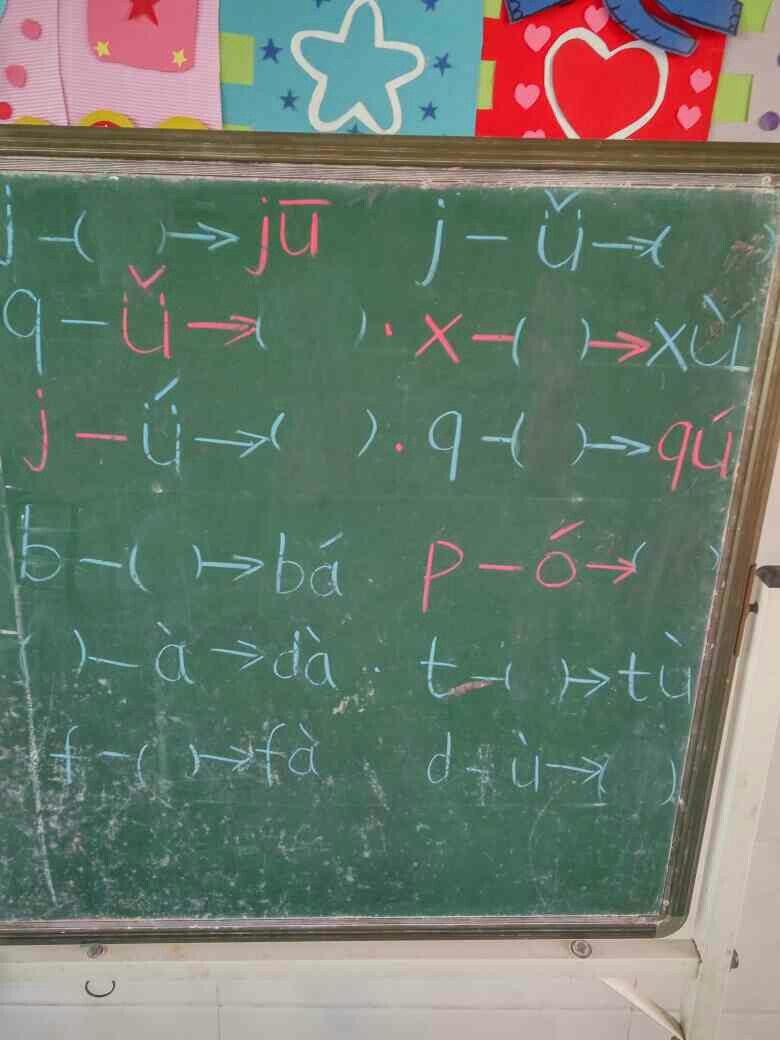 j –( )→ jū j – ǚ →( )
q – ǚ →( ) · x –( )→ xù
j – ǘ →( ) · q –( )→ qú
b –( )→ bá p – ó →( )
( )– à → dà ·· t –( )→ tù
f –( )→ fà d – ù →( )